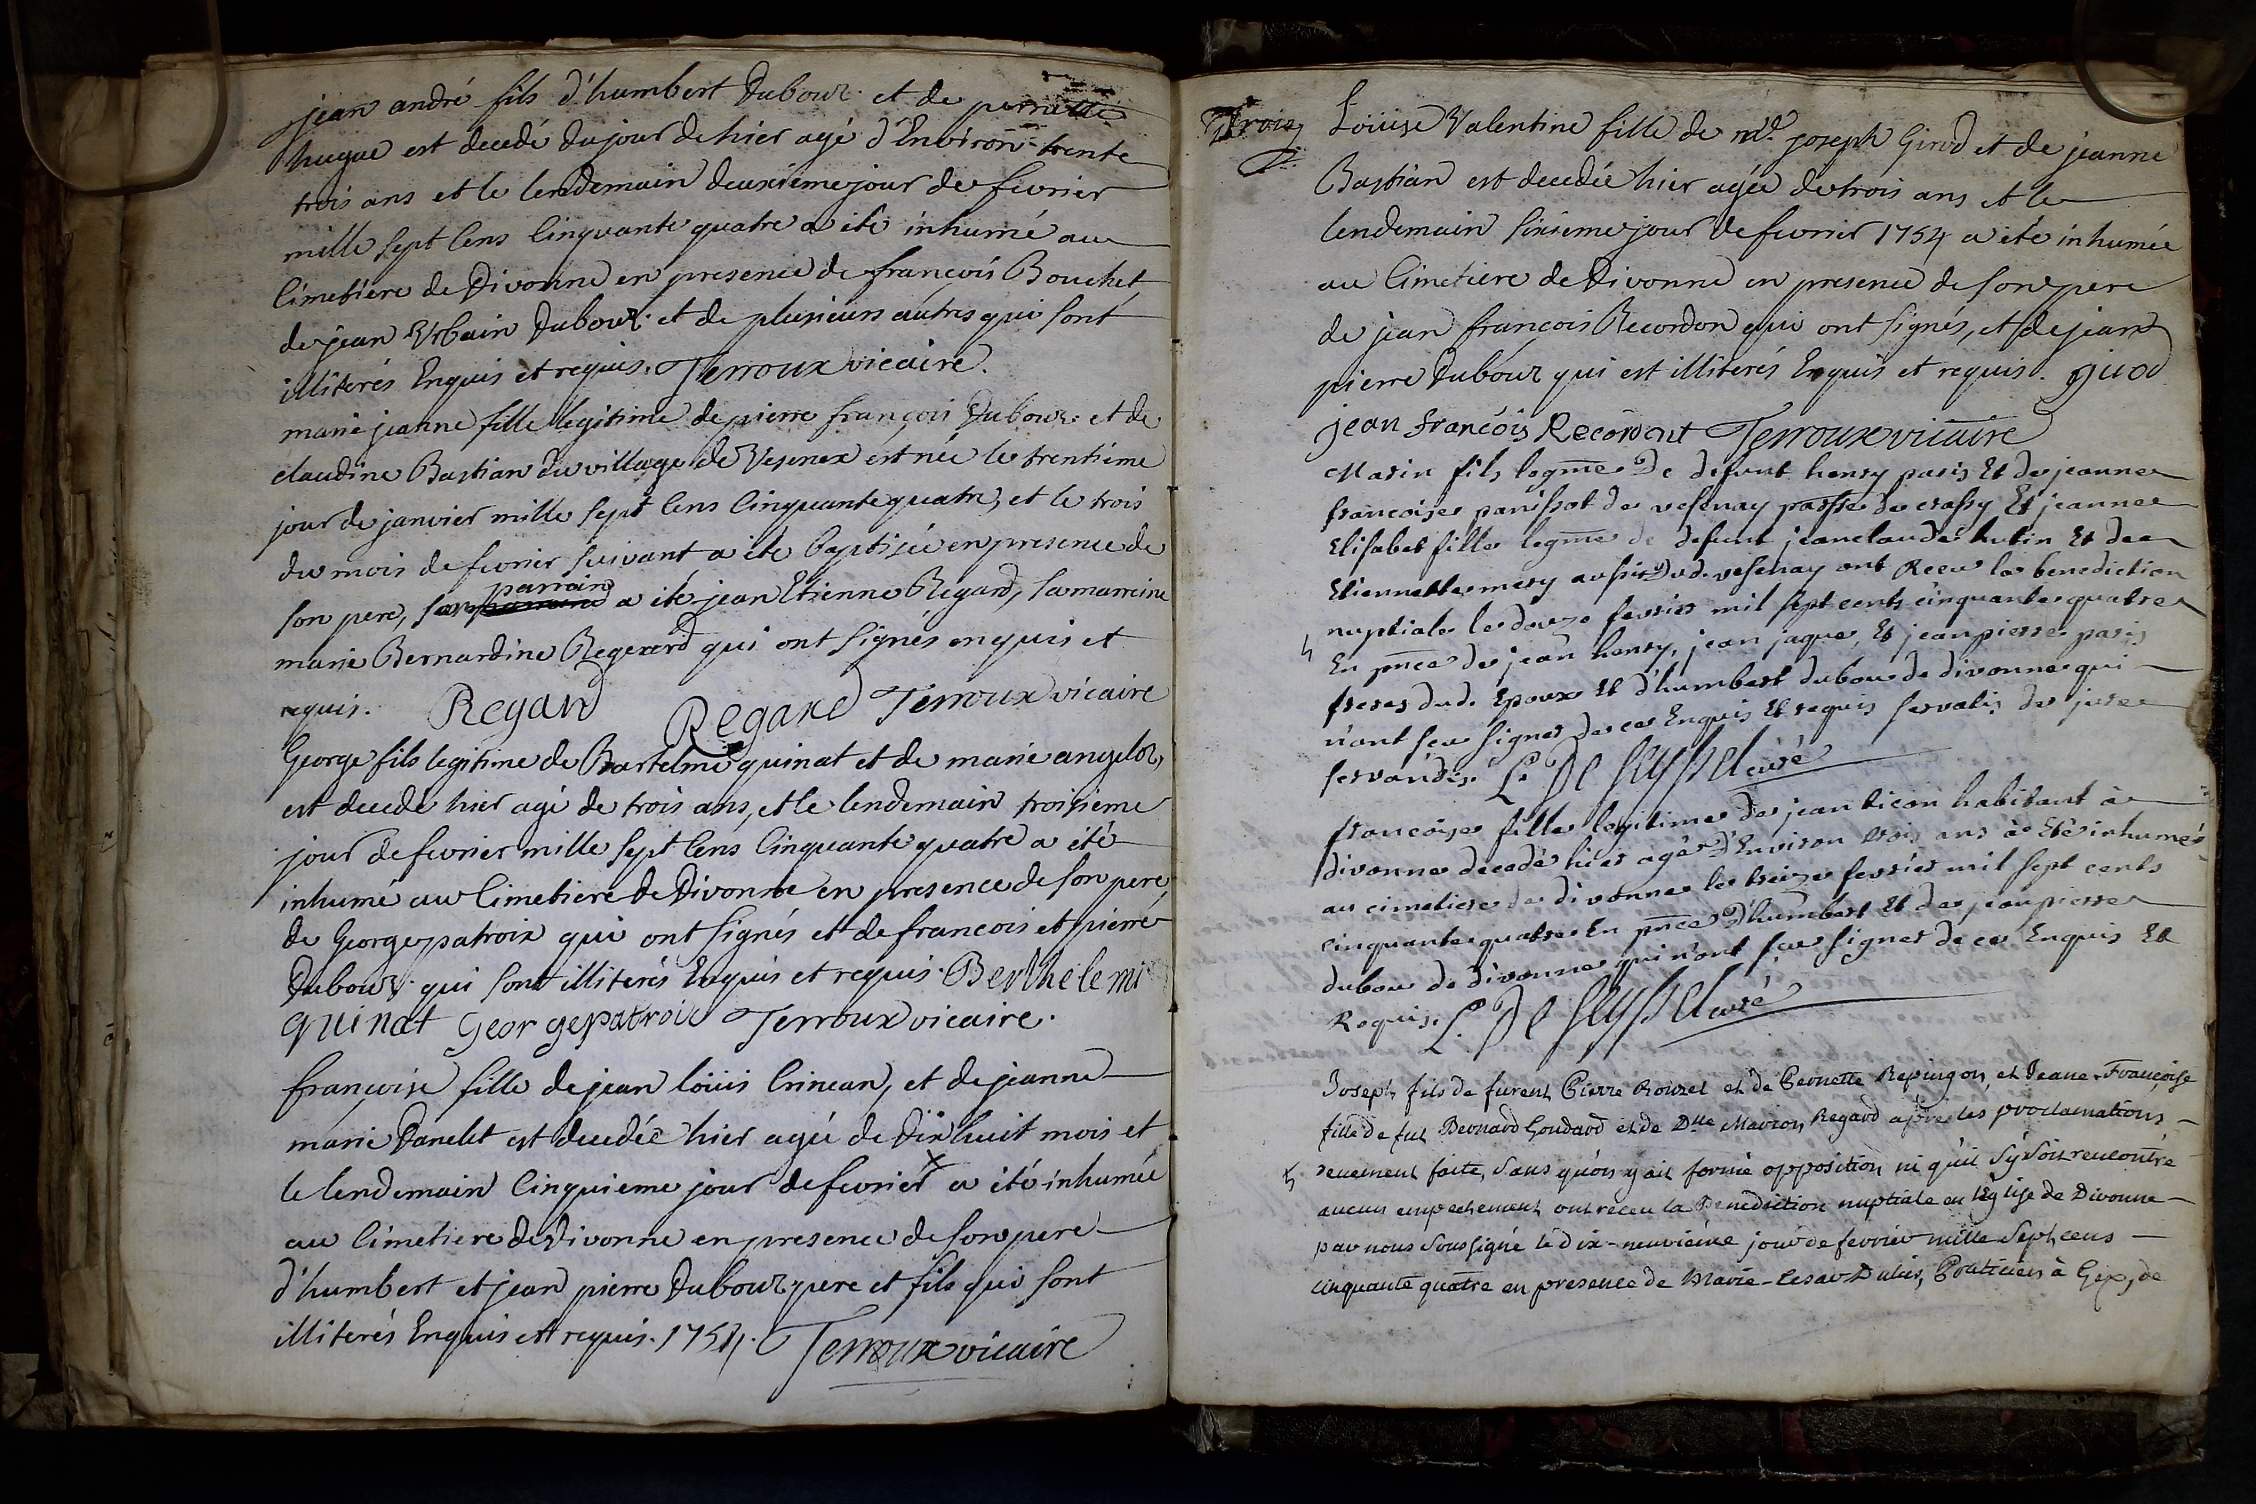 jean andré fils d'humbert Dubouz. et de pernette
hugue est decedé du jour de hier agé d'Environ trente
trois ans et le lendemain deuxieme jour de fevrier
mille sept Cens Cinquante quatre a été inhumé au
Cimetiere de Divonne en presence de françois Bouchet
de jean Urbain Dubouz. et de plusieurs autres qui sont
illiterés Enquis et requis. Terroux vicaire.
marie jeanne fille legitime de pierre françois Dubouz. et de
claudine Bastian du village de Vesenex est née le trentième
jour de janvier mille sept Cens Cinquante quatre, et le trois
du mois de fevrier suivant a été baptisée en presence de
son pere, son parrain a été jean Etienne Regard, sa marreine
marie Bernardine Regard qui ont signés enquis et
requis. Regard Regard Terroux vicaire
George fils legitime de Bartelmé quinat et de marie angeloz,
est decedé hier agé de trois ans, et le lendemain troisieme
jour de fevrier mille sept Cens Cinquante quatre a été
inhumé au Cimetiere de Divonne en presence de son pere,
de George patroix qui ont signés et de francois et pierre
Dubouz. qui sont illiterés Enquis et requis. Berthelemi
quinat George patroix Terroux vicaire.
françoise fille de jean loüis Crinean, et de jeanne
marie Danelet est decedée hier agée de Dix huit mois et
le lendemain Cinquieme jour de fevrier a été inhumée
au Cimetiere de Divonne en presence de son pere
d'humbert et jean pierre Dubouz pere et fils qui sont
illiterés Enquis et requis. 1754. Terroux vicaire
Trois
Loüise Valentine fille de md. joseph Girod et de jeanne
Bastian est decedée hier agée de trois ans et le
lendemain sixieme jour de fevrier 1754 a été inhumée
au Cimetiere de Divonne en presence de son pere
de jean françois Recordon qui ont signés, et de jean
pierre Dubouz qui est illiterés Enquis et requis. girod
jean françois Recordont Terroux vicaire
Marin fils legme de defunt henry paris Et de jeanne
françoise panissot de vesenay passe de crassy Et jeanne
Elisabet fille legme de defunt jean claude hutin Et de
Etiennette mery aussi dud. vesenay ont Receu la benediction
nuptiale le douze fevrier mil sept cents cinquante quatre
En pnce de jean henry, jean jaque, Et jean pierre paris
freres dud. Epoux Et d'humbert dubou de divonne qui
n'ont sçeu signer de ce Enquis Et requis servatis de jure
servandis. L. De seyssel curé
françoise fille legitime de jean ticon habitant à
divonne decedé hier agé d'Environ trois ans à Eté inhumés
au cimetiere de divonne le treize fevrier mil sept cents
cinquante quatre En pnce d'humbert Et de jean pierre
dubou de divonne qui n'ont sçeu signer de ce Enquis Et
Requis. L. De seyssel curé
Joseph fils de furent Pierre Rouzet et de Pernette Repingon, et Jeane-Françoise
fille de fut Bernard Goudard et de Dlle Marion Regard après les proclamations
reuement faite, sans qu'on y ait formé opposition ni qu'il s'y soit rencontré
aucun empechement ont reçeu la Benediction nuptiale en l'Eglise de Divonne
par nous soussigné le dix-neuvième jour de fevrier mille sept cens
cinquante quatre en presence de Marie-Cesar Praticien à Gex, de